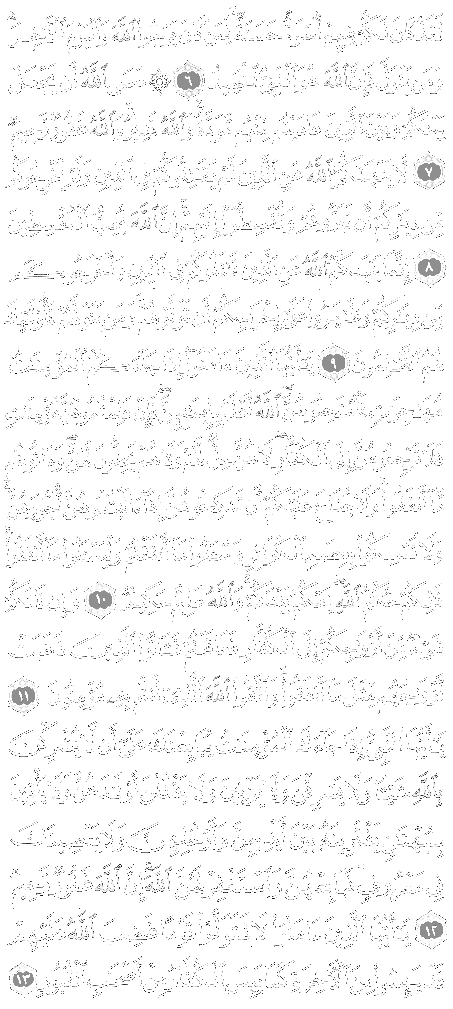 لَقَدْ كَانَ لَكُمْ فِيهِمْ أُسْوَةٌ حَسَنَةٌ لِّمَن كَانَ يَرْجُوا۟ ٱللَّهَ وَٱلْيَوْمَ ٱلْـَٔاخِرَ
وَمَن يَتَوَلَّ فَإِنَّ ٱللَّهَ هُوَ ٱلْغَنِىُّ ٱلْحَمِيدُ ٦ ۞ عَسَى ٱللَّهُ أَن يَجْعَلَ
بَيْنَكُمْ وَبَيْنَ ٱلَّذِينَ عَادَيْتُم مِّنْهُم مَّوَدَّةً وَٱللَّهُ قَدِيرٌ وَٱللَّهُ غَفُورٌ رَّحِيمٌ
٧ لَّا يَنْهَىٰكُمُ ٱللَّهُ عَنِ ٱلَّذِينَ لَمْ يُقَـٰتِلُوكُمْ فِى ٱلدِّينِ وَلَمْ يُخْرِجُوكُم
مِّن دِيَـٰرِكُمْ أَن تَبَرُّوهُمْ وَتُقْسِطُوٓا۟ إِلَيْهِمْ إِنَّ ٱللَّهَ يُحِبُّ ٱلْمُقْسِطِينَ
٨ إِنَّمَا يَنْهَىٰكُمُ ٱللَّهُ عَنِ ٱلَّذِينَ قَـٰتَلُوكُمْ فِى ٱلدِّينِ وَأَخْرَجُوكُم
مِّن دِيَـٰرِكُمْ وَظَـٰهَرُوا۟ عَلَىٰٓ إِخْرَاجِكُمْ أَن تَوَلَّوْهُمْ وَمَن يَتَوَلَّهُمْ فَأُو۟لَـٰٓئِكَ
هُمُ ٱلظَّـٰلِمُونَ ٩ يَـٰٓأَيُّهَا ٱلَّذِينَ ءَامَنُوٓا۟ إِذَا جَآءَكُمُ ٱلْمُؤْمِنَـٰتُ
مُهَـٰجِرَٰتٍ فَٱمْتَحِنُوهُنَّ ٱللَّهُ أَعْلَمُ بِإِيمَـٰنِهِنَّ فَإِنْ عَلِمْتُمُوهُنَّ مُؤْمِنَـٰتٍ
فَلَا تَرْجِعُوهُنَّ إِلَى ٱلْكُفَّارِ لَا هُنَّ حِلٌّ لَّهُمْ وَلَا هُمْ يَحِلُّونَ لَهُنَّ وَءَاتُوهُم
مَّآ أَنفَقُوا۟ وَلَا جُنَاحَ عَلَيْكُمْ أَن تَنكِحُوهُنَّ إِذَآ ءَاتَيْتُمُوهُنَّ أُجُورَهُنَّ
وَلَا تُمْسِكُوا۟ بِعِصَمِ ٱلْكَوَافِرِ وَسْـَٔلُوا۟ مَآ أَنفَقْتُمْ وَلْيَسْـَٔلُوا۟ مَآ أَنفَقُوا۟
ذَٰلِكُمْ حُكْمُ ٱللَّهِ يَحْكُمُ بَيْنَكُمْ وَٱللَّهُ عَلِيمٌ حَكِيمٌ ١٠ وَإِن فَاتَكُمْ
شَىْءٌ مِّنْ أَزْوَٰجِكُمْ إِلَى ٱلْكُفَّارِ فَعَاقَبْتُمْ فَـَٔاتُوا۟ ٱلَّذِينَ ذَهَبَتْ
أَزْوَٰجُهُم مِّثْلَ مَآ أَنفَقُوا۟ وَٱتَّقُوا۟ ٱللَّهَ ٱلَّذِىٓ أَنتُم بِهِۦ مُؤْمِنُونَ ١١
يَـٰٓأَيُّهَا ٱلنَّبِىُّ إِذَا جَآءَكَ ٱلْمُؤْمِنَـٰتُ يُبَايِعْنَكَ عَلَىٰٓ أَن لَّا يُشْرِكْنَ
بِٱللَّهِ شَيْـًٔا وَلَا يَسْرِقْنَ وَلَا يَزْنِينَ وَلَا يَقْتُلْنَ أَوْلَـٰدَهُنَّ وَلَا يَأْتِينَ
بِبُهْتَـٰنٍ يَفْتَرِينَهُۥ بَيْنَ أَيْدِيهِنَّ وَأَرْجُلِهِنَّ وَلَا يَعْصِينَكَ
فِى مَعْرُوفٍ فَبَايِعْهُنَّ وَٱسْتَغْفِرْ لَهُنَّ ٱللَّهَ إِنَّ ٱللَّهَ غَفُورٌ رَّحِيمٌ
١٢ يَـٰٓأَيُّهَا ٱلَّذِينَ ءَامَنُوا۟ لَا تَتَوَلَّوْا۟ قَوْمًا غَضِبَ ٱللَّهُ عَلَيْهِمْ
قَدْ يَئِسُوا۟ مِنَ ٱلْـَٔاخِرَةِ كَمَا يَئِسَ ٱلْكُفَّارُ مِنْ أَصْحَـٰبِ ٱلْقُبُورِ ١٣